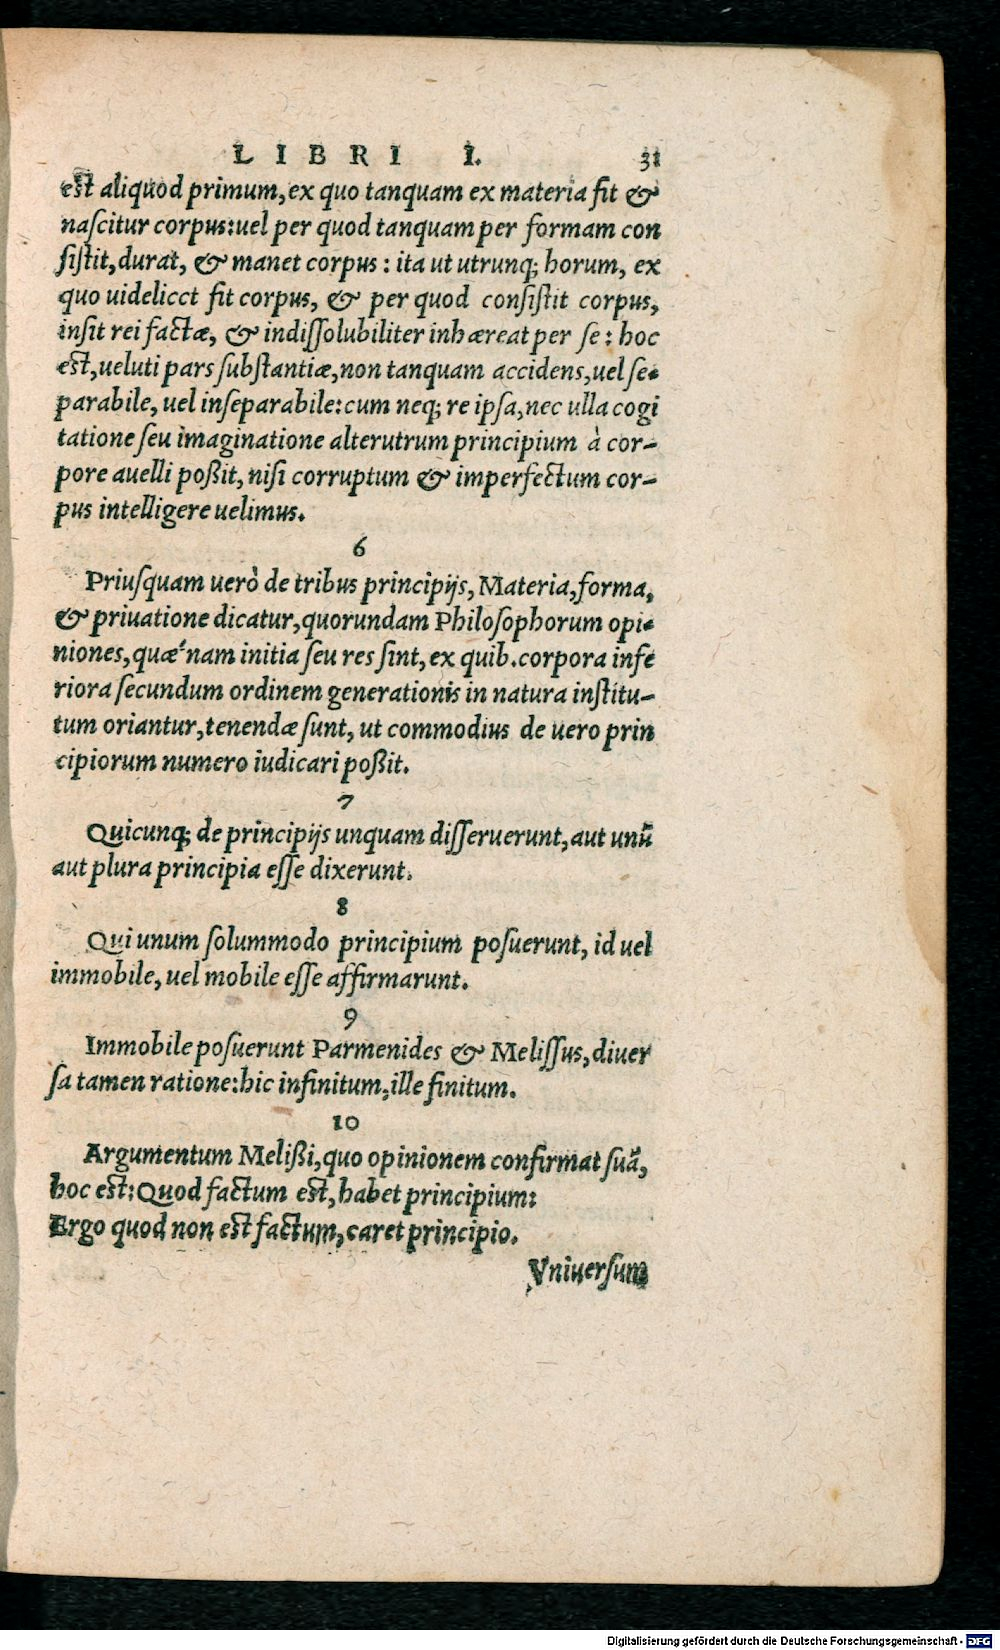 LIBRI I. 31
est aliquod primum, ex quo tanquam ex materia fit &
naſcitur corpus: uel per quod tanquam per formam con
ſiſtit, durat, & manet corpus: ita ut utrunq; horum, ex
quo uidelicct fit corpus, & per quod conſiſtit corpus,
inſit rei factæ, & indiſſolubiliter inhæreat per ſe: hoc
eſt, ueluti pars ſubſtantiæ, non tanquam accidens, uel ſe-
parabile, uel inſeparabile: cum neq; re ipſa, nec ulla cogi
tatione ſeu imaginatione alterutrum principium à cor-
pore auelli poßit, niſi corruptum & imperfectum cor-
pus intelligere uelimus.
6
Priuſquam uerò de tribus principijs, Materia, forma,
& priuatione dicatur, quorundam Philoſophorum opi-
niones, quæ´nam initia ſeu res ſint, ex quib. corpora infe
riora ſecundum ordinem generationis in natura inſtitu-
tum oriantur, tenendæ ſunt, ut commodius de uero prin
cipiorum numero iudicari poßit.
7
Quicunq; de principijs unquam diſſeruerunt, aut unū
aut plura principia eſſe dixerunt.
8
Qui unum ſolummodo principium poſuerunt, id uel
immobile, uel mobile eſſe affirmarunt.
9
Immobile poſuerunt Parmenides & Meliſſus, diuer
ſa tamen ratione: hic infinitum, ille finitum.
10
Argumentum Melißi, quo opinionem confirmat ſuā,
hoc eſt: Quod factum eſt, habet principium:
Ergo quod non eſt factum, caret principio.
Vniuerſum
Digitalisierung gefördert durch die Deutsche Forschungsgemeinschaft - DFG